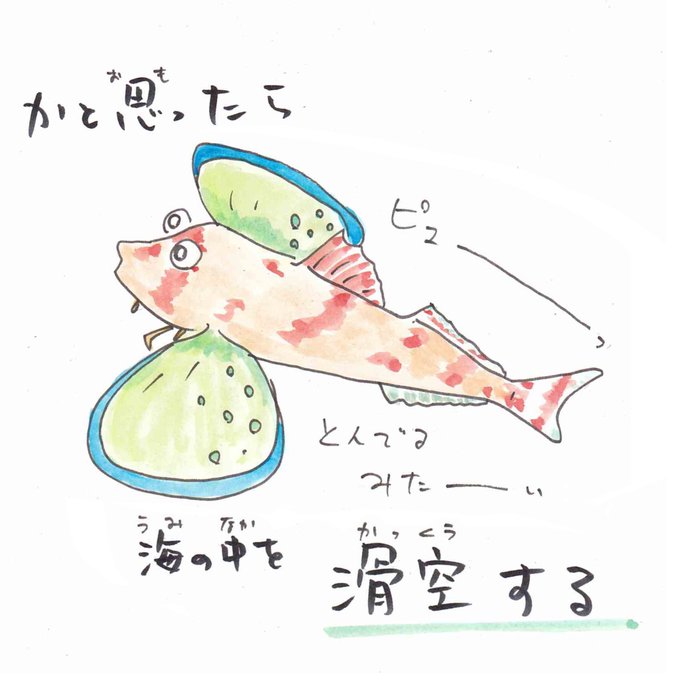 かと思ったら
おも
ピュー
とんでる
みたーい
海の中を
うみ なか
滑空する
かっくう